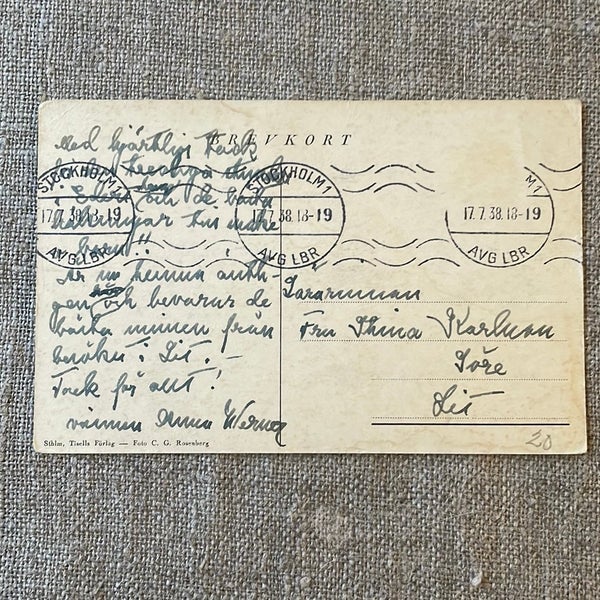 BREVKORT
Med hjärtligt tack
i Eder och de bästa
hälsningar
barn!!
Är nu hemma
gen och bevarar de
bästa minnen från
besöket i Lit. –
Tack för allt!
vännen Anna Werner
STOCKHOLM 1
17.7.38.18-19
AVG LBR
STOCKHOLM 1
17.7.38.18-19
AVG LBR
M 1
17.7.38.18-19
AVG LBR
Fru Stina Karlman
Söre
Lit
20
Sthlm, Tisells Förlag — Foto C. G. Rosenberg